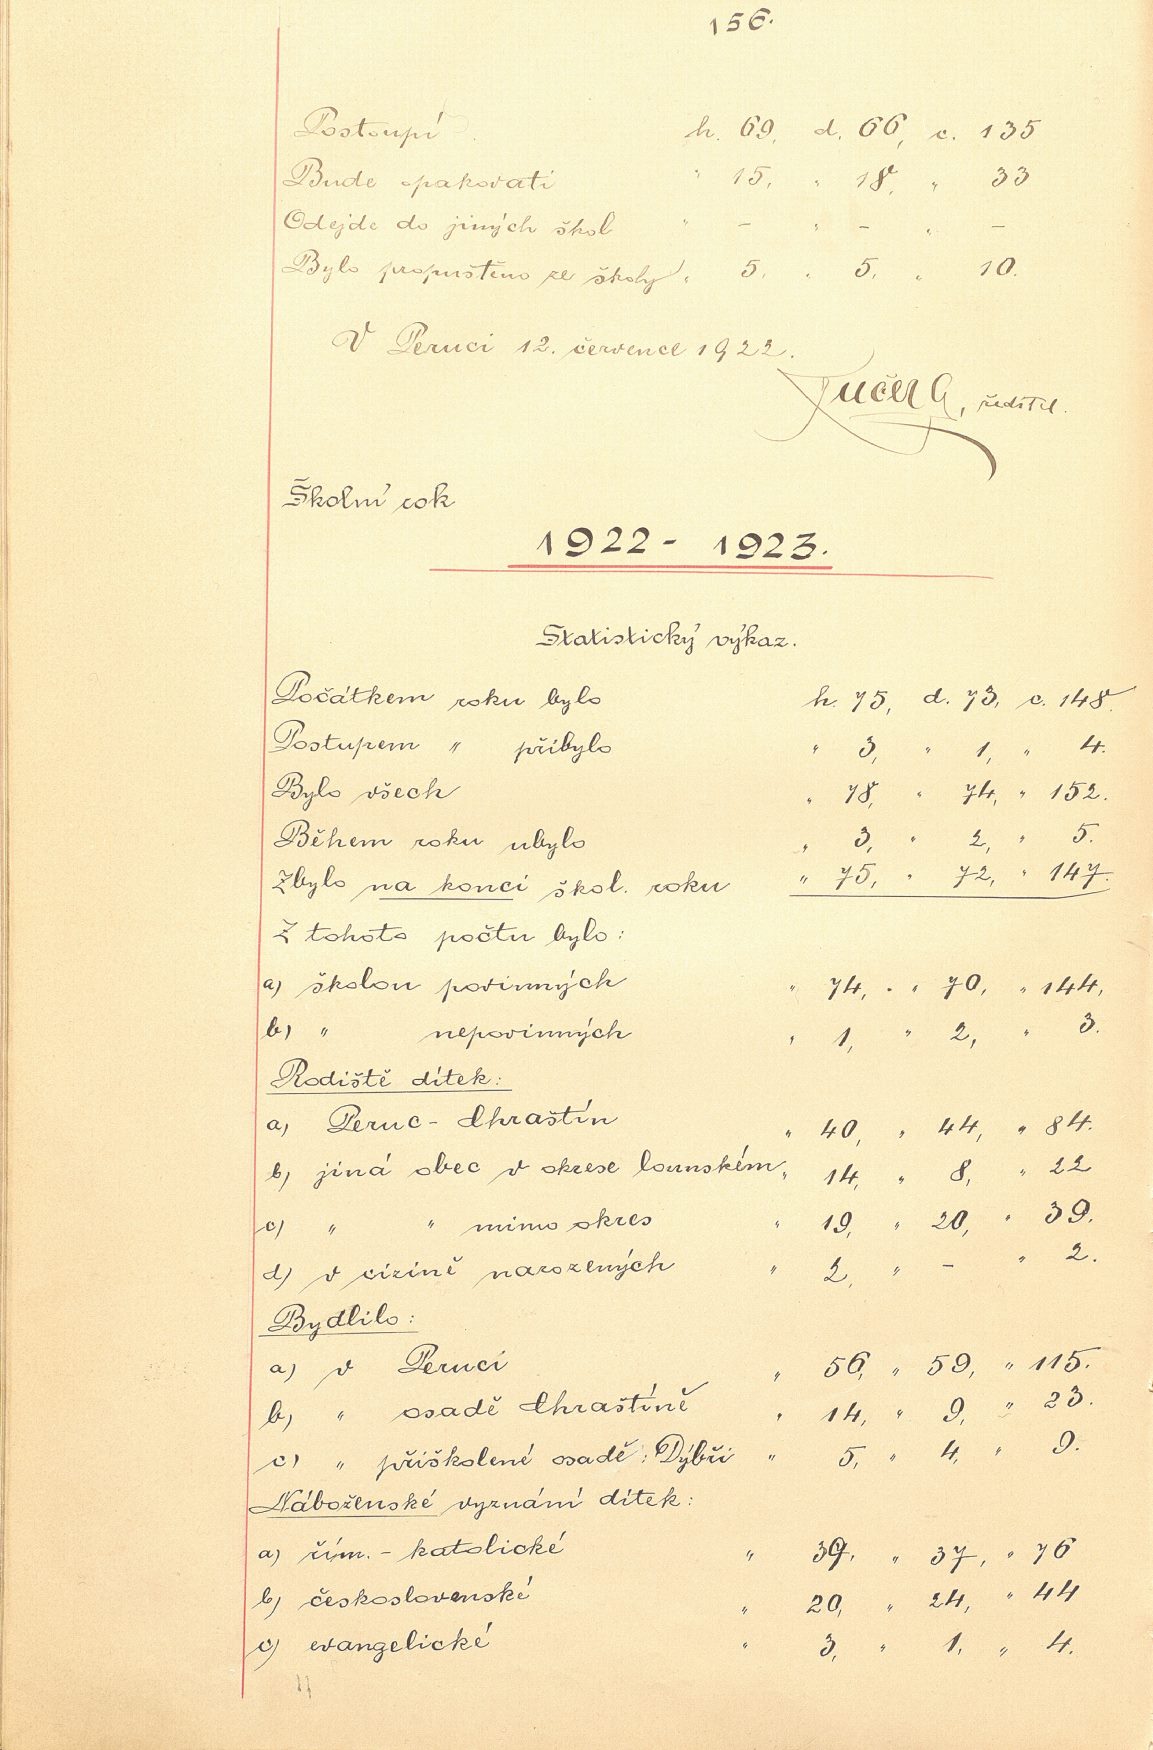 156.
Postoupí h. 69, d. 66, c. 135
Bude opakovati " 15, " 18, " 33
Odejde do jiných škol " – " – " –
Bylo propuštěno ze školy " 5. " 5. " 10.
V Peruci 12. července 1922.
ředitel.
Školní rok
1922 - 1923.
Statistický výkaz.
Počátkem roku bylo h. 75, d. 73, c. 148.
Postupem " přibylo " 3, " 1, " 4.
Bylo všech " 78, " 74, " 152.
Během roku ubylo " 3, " 2, " 5.
Zbylo na konci škol. roku " 75, " 72, " 147.
Z tohoto počtu bylo:
a) školou povinných " 74, " 70, " 144,
b) " nepovinných " 1, " 2, " 3.
Rodiště dítek:
a) Peruc - Chrastín " 40, " 44, " 84.
b) jiná obec v okrese lounském " 14, " 8, " 22
c) " " mimo okres " 19, " 20, " 39.
d) v cizině narozených " 2, " – " 2.
Bydlilo:
a) v Peruci " 56, " 59, " 115.
b) " osadě Chraštíně " 14, " 9, " 23.
c) " přiškolené osadě: Dýbři " 5, " 4, " 9.
Náboženské vyznání dítek:
a) řím. - katolické " 39, " 37, " 76
b) československé " 20, " 24, " 44
c) evangelické " 3, " 1, " 4.